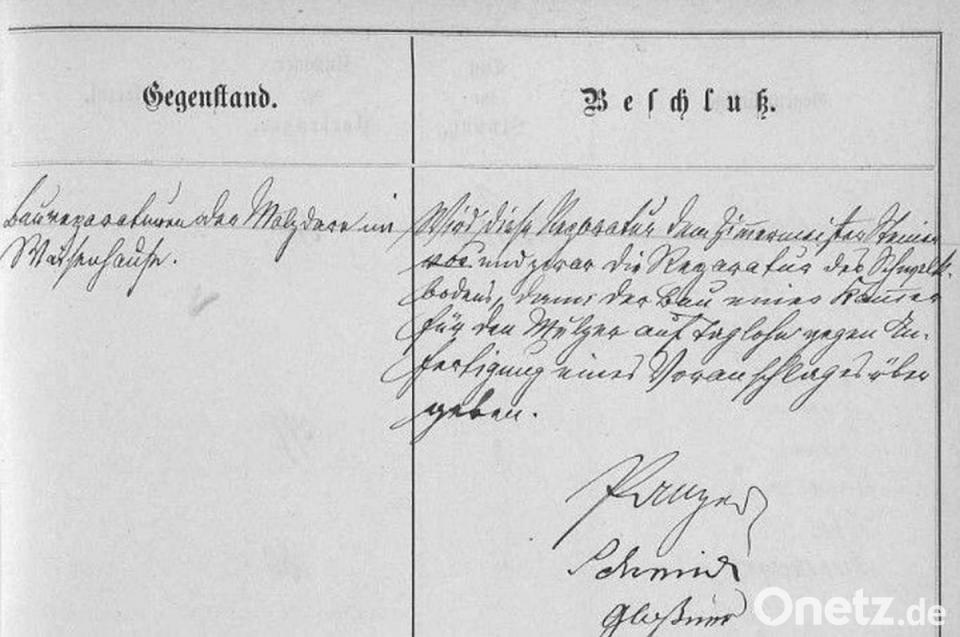 Gegenstand.
Beschluß.
Baureparaturen der Malzdarre im
Waisenhause.
Wird diese Reparatur dem Zimmermeister Steiner
und zwar die Reparatur des
bodens, dann der Bau einer Kammer
für den Mälzer auf Taglohn gegen An-
fertigung eines Voranschlages über
geben.
Schmid
Onetz.de